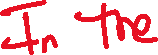 In the